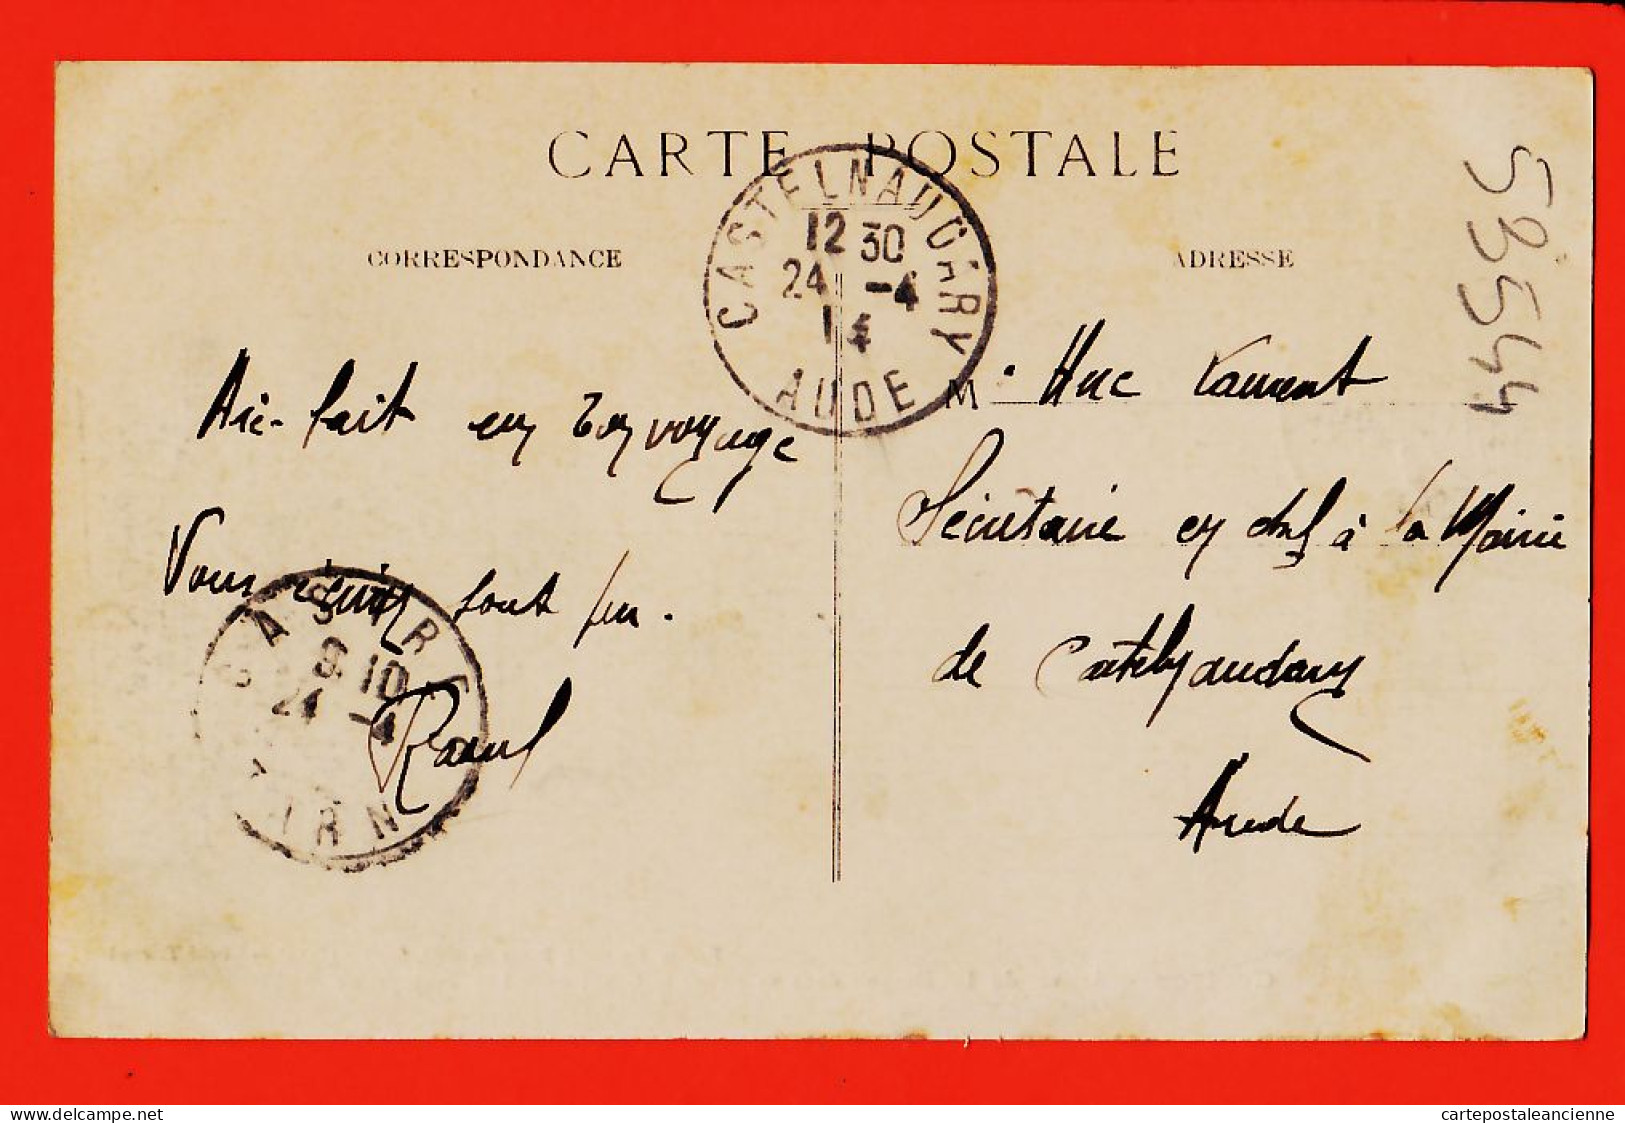 CARTE POSTALE
CORRESPONDANCE
ADRESSE
CASTELNAUDARY
12 30
24 -4
14
AUDE
53544
Ai fait en bon voyage
Vous sont peu.
Raoul
CASTRES
9 10
24 -4
TARN
M. Huc Laurent
Secrétaire en chef à la Mairie
de Castelnaudary
Aude
delcampe.net
cartepostaleancienne